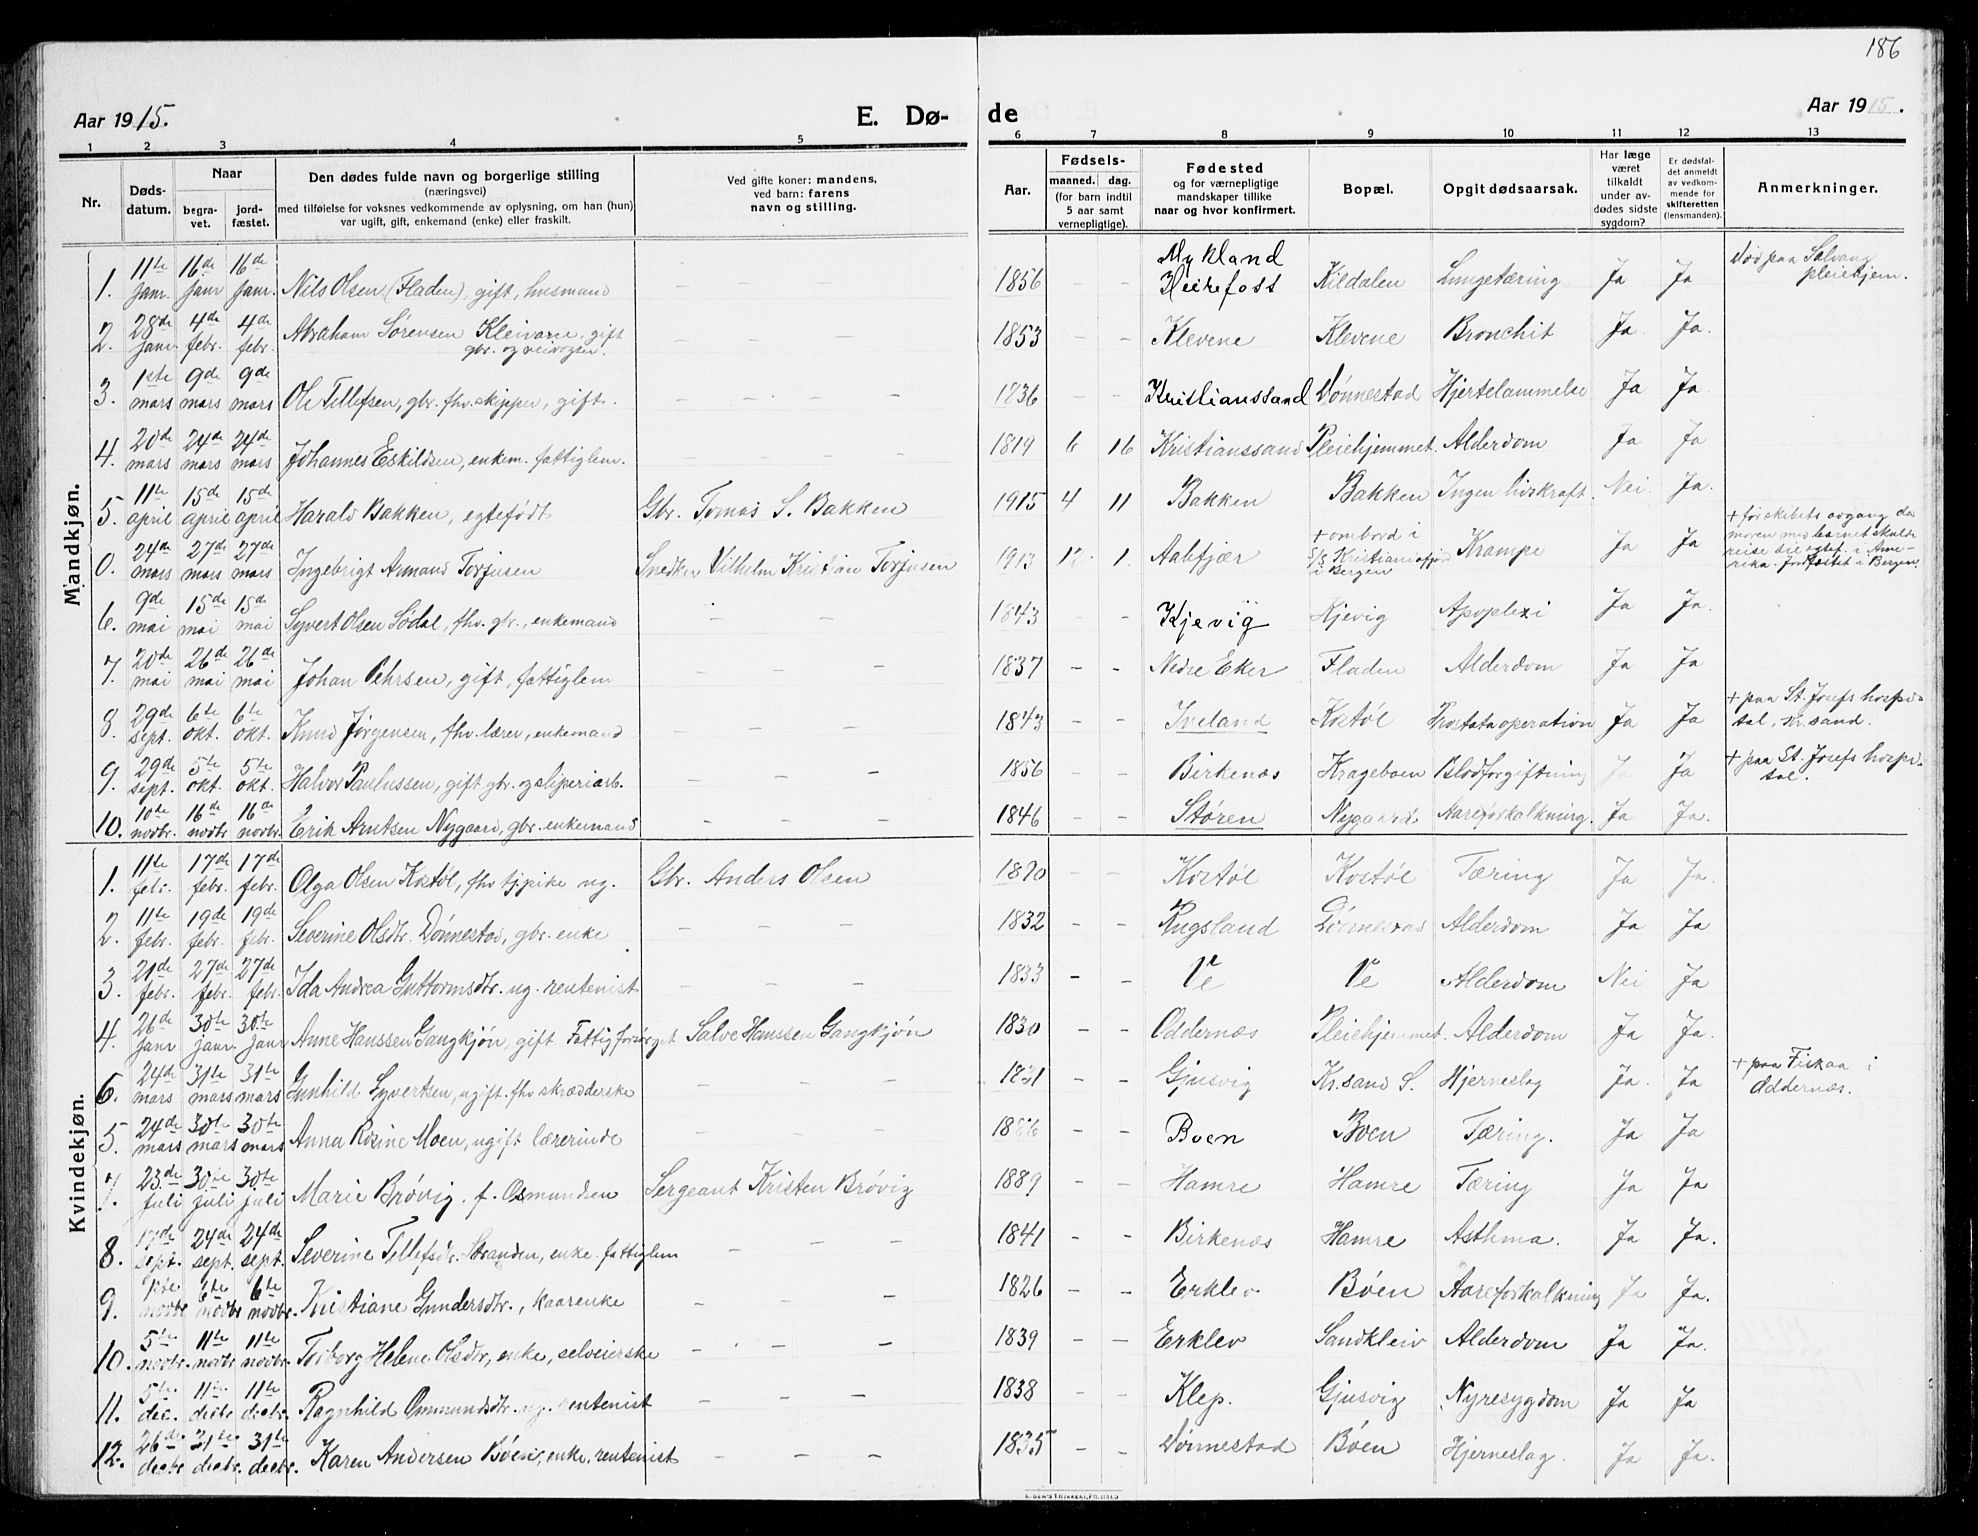 186
Aar 1915. E. Dø- de Aar 1915.
1 2 3 4 5 6 7 8 9 10 11 12 13
Nr. Døds-datum. Naar begravet. jordfæstet. Den dødes fulde navn og borgerlige stilling (næringsvei) med tilføielse for voksnes vedkommende av oplysning, om han (hun) var ugift, gift, enkemand (enke) eller fraskilt. Ved gifte koner: mandens, ved barn: farens navn og stilling. Aar. Fødsels- maaned. dag. (for barn indtil 5 aar samt vernepligtige). Fødested og for værnepligtige mandskaper tillike naar og hvor konfirmert. Bopæl. Opgit dødsaarsak. Har læge været tilkaldt under avdødes sidste sygdom? Er dødsfaldet anmeldt av vedkommende for skifteretten (lensmanden). Anmerkninger.
Mandkjøn.
1. 11te janr. 16de janr 16de janr. Nils Olsen (Fladen), gift, husmand 1856 Mykland Heirefoss Kildalen Lungetæring Ja Ja Død paa Solvang pleiehjem.
2. 28de janr. 4de febr. 4de febr. Abraham Sørensen Kleivane, gift gbr. og veivogter. – – – 1853 – – Klevene Klevene Bronchit Ja Ja.
3. 1ste mars 9de mars 9de mars Ole Tellefsen, gbr. fhv. skipper, gift. – – – 1836 – – Kristianssand Dønnestad Hjertelammelse Ja Ja
4. 20de mars 24de mars 24de mars Johannes Eskildsen, enkem. fattiglem. – – – 1819 6 16 Kristianssand Pleiehjemmet. Alderdom Ja Ja
5. 11te april 15de april 15de april Harald Bakken, egtefødt Gbr. Tomas S. Bakken 1915 4 11 Bakken Bakken Ingen livskraft. Nei. Ja.
0. 24de mars 27de mars 27de mars Ingebrigt Armand Torjusen Snedker Vilhelm Kristian Torjusen 1913 12 1. Aabfjær + ombord i S/S Kristianiafjord i Bergen Krampe Ja Ja. + før skibets avgang da moren med barnet skulde reise til egtef. i Amerika. Jordfæstet i Bergen
6. 9de mai 15de mai 15de mai Syvert Olsen Sødal, fhv. gbr., enkemand – – – 1843 – – Kjevig Kjevig Apoplexi Ja Ja.
7. 20de mai 26de mai 26de mai Johan Pehrsen, gift, fattiglem – – – 1837 – – Nedre Eker Fladen Alderdom Ja Ja
8. 29de sept. 6te okt. 6te okt. Knud Jørgensen, fhv. lærer, enkemand – – – 1843 – – Iveland Kostøl Prostataoperation Ja Ja + paa St. Josefs hospital, Kr.sand.
9. 29de sept. 5te okt. 5te okt. Halvor Paulussen, gift gbr. og sliperiarb. – – – 1856 – – Birkenæs Krageboen Blodforgiftning Ja Ja + paa St. Josefs hospital.
10. 10de novbr. 16de novbr 16de novbr. Erik Arntsen Nygaard, gbr. enkemand – – – 1846 – – Støren Nygaard Aareforkalkning. Ja Ja.
Kvindekjøn.
1. 11te febr. 17de febr. 17de febr. Olga Olsen Kostøl, fhv tjpike ug. Gbr. Anders Olsen 1890 – – Kostøl Kostøl Tæring Ja Ja.
2. 11te febr. 19de febr. 19de febr. Severine Olsdtr. Dønnestad, gbr. enke – – – 1832 – – Rugsland Dønnestad Alderdom Ja Ja.
3. 21de febr. 27de febr. 27de febr. Ida Andrea Guttormsdtr. ug. rentenist – – – 1833 – – Ve Ve Alderdom Nei Ja
4. 26de janr 30te janr. 30te janr Anne Hanssen Gangkjøn, gift Fattigforsørget Salve Hanssen Gangkjøn 1830 – – Oddernæs Pleiehjemmet. Alderdom Ja Ja.
6. 24de mars 31te mars 31te mars Gunhild Syvertsen, ugift. fhv skrædderske – – – 1831 – – Gjusvig Kr.sand S. Hjerneslag Ja. Ja + paa Fiskaa i Oddernæs.
5. 24de mars 30te mars 30te mars Anna Rosine Moen, ugift lærerinde 1886 – – Boen Boen Tæring. Ja Ja
7. 23de juli 30te juli 30te juli Marie Brøvig. f. Osmundsen Sergeant Kristen Brøvig 1889 – – Hamre Hamre Tæring Ja Ja
8. 17de sept. 24de sept. 24de sept. Severine Tellefsdtr. Stranden, enke. fattiglem – – – 1841 – – Birkenæs Hamre Asthma. Ja Ja.
9. 1ste novbr 6te novbr 6te novbr. Kristiane Gundersdtr., kaarenke – – – 1826 – – Erklev Bøen Aareforkalkning Ja Ja.
10. 5te novbr. 11te novbr 11te novbr. Torborg Helene Olsdtr, enke, selveierske – – – 1839 – – Erklev Sandkleiv Alderdom Ja Ja.
11. 5te dec. 11te decbr 11te decbr. Ragnhild Ommundsdtr. ug. rentenist – – – 1838 – – Klep. Gjusvig Nyresygdom Ja Ja
12. 26de decbr 31te decbr. 31te decbr Karen Andersen Bøen, enke, rentenist – – – 1835 – – Dønnestad Bøen Hjerneslag. Ja Ja.